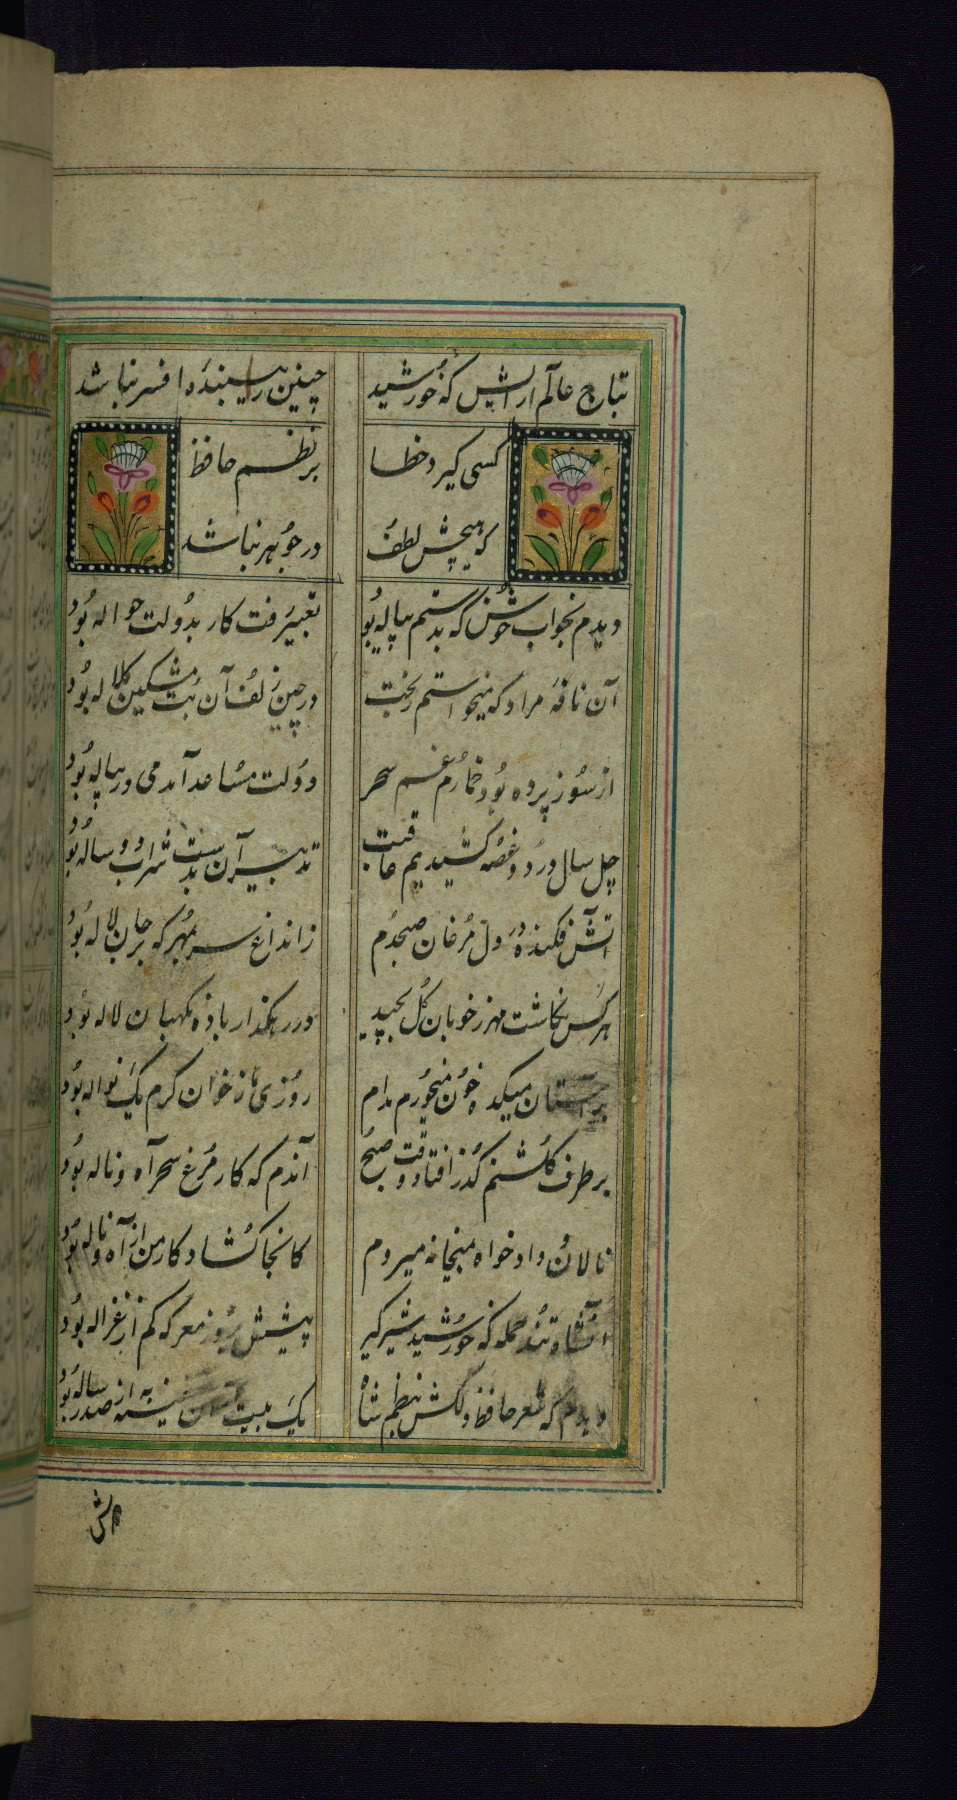 بتاج عالم آرایش که خورشید چنین زیبندهٔ افسر نباشد
کسی گیرد خطا بر نظم حافظ
که هیچش لطف در جوهر نباشد
دیدم بخواب خوش که بدستم پیاله بود تعبیر رفت کار بدولت حواله بود
آن نافهٔ مراد که میخواستم ز بخت در چین زلف آن بت مشکین کلاله بود
از سوز پرده بود خمارم غم سحر دولت مساعد آمد می در پیاله بود
چل سال درد و غصه کشیدیم عاقبت تدبیر آن بدست شراب دو ساله بود
آتش فکنده در دل مرغان صبحدم زان داغ سر بمهر که بر جان لاله بود
هر کس نکاشت مهر ز خوبان گل نچید در رهگذار باد نگهبان لاله بود
بر آستان میکده خون میخورم مدام روزی ما ز خوان کرم یک نواله بود
بر طرف گلشنم گذر افتاد وقت صبح آندم که کار مرغ سحر آه و ناله بود
نالان و دادخواه بمیخانه میروم کانجا گشاد کار من از آه و ناله بود
آن شاه تند حمله که خورشید شیرگیر پیشش بروز معرکه کمتر از غزاله بود
دیدم که شعر حافظ دلکش بنظم شاه یک بیت از سفینه به از صد رساله بود